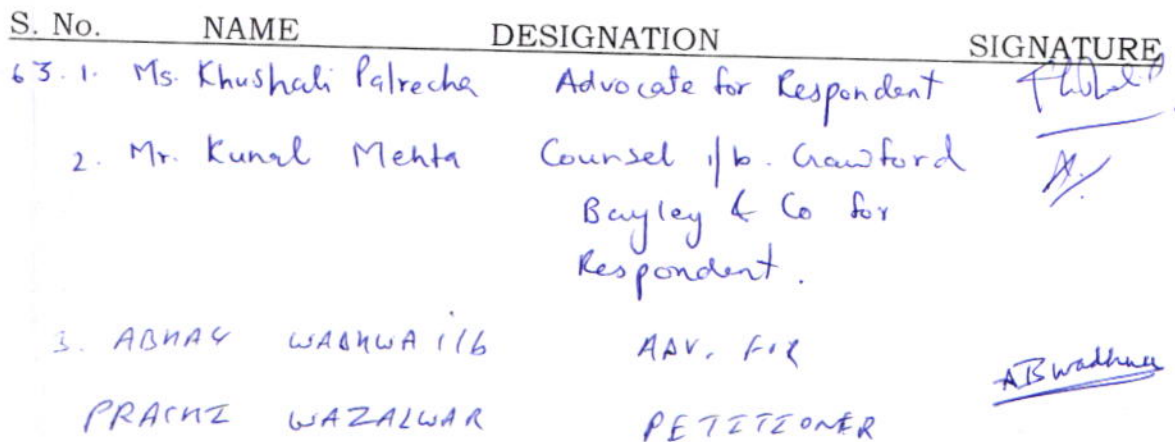 S. No. NAME DESIGNATION SIGNATURE
63. 1. Ms. Khushali Palrecha Advocate for Respondent
2. Mr. Kunal Mehta Counsel i/b. Crawford
Bayley & Co for
Respondent.
3. ABHAY WADHWA i/b ADV. FOR
ABWadhwa
PRACHI WAZALWAR PETITIONER